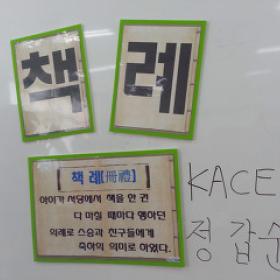 책 례
책 례(冊禮)
아이가 서당에서 책을 한 권
다 마칠 때마다 행하던
의례로 스승과 친구들에게
축하의 의미로 하였다.
KACE
정 갑순